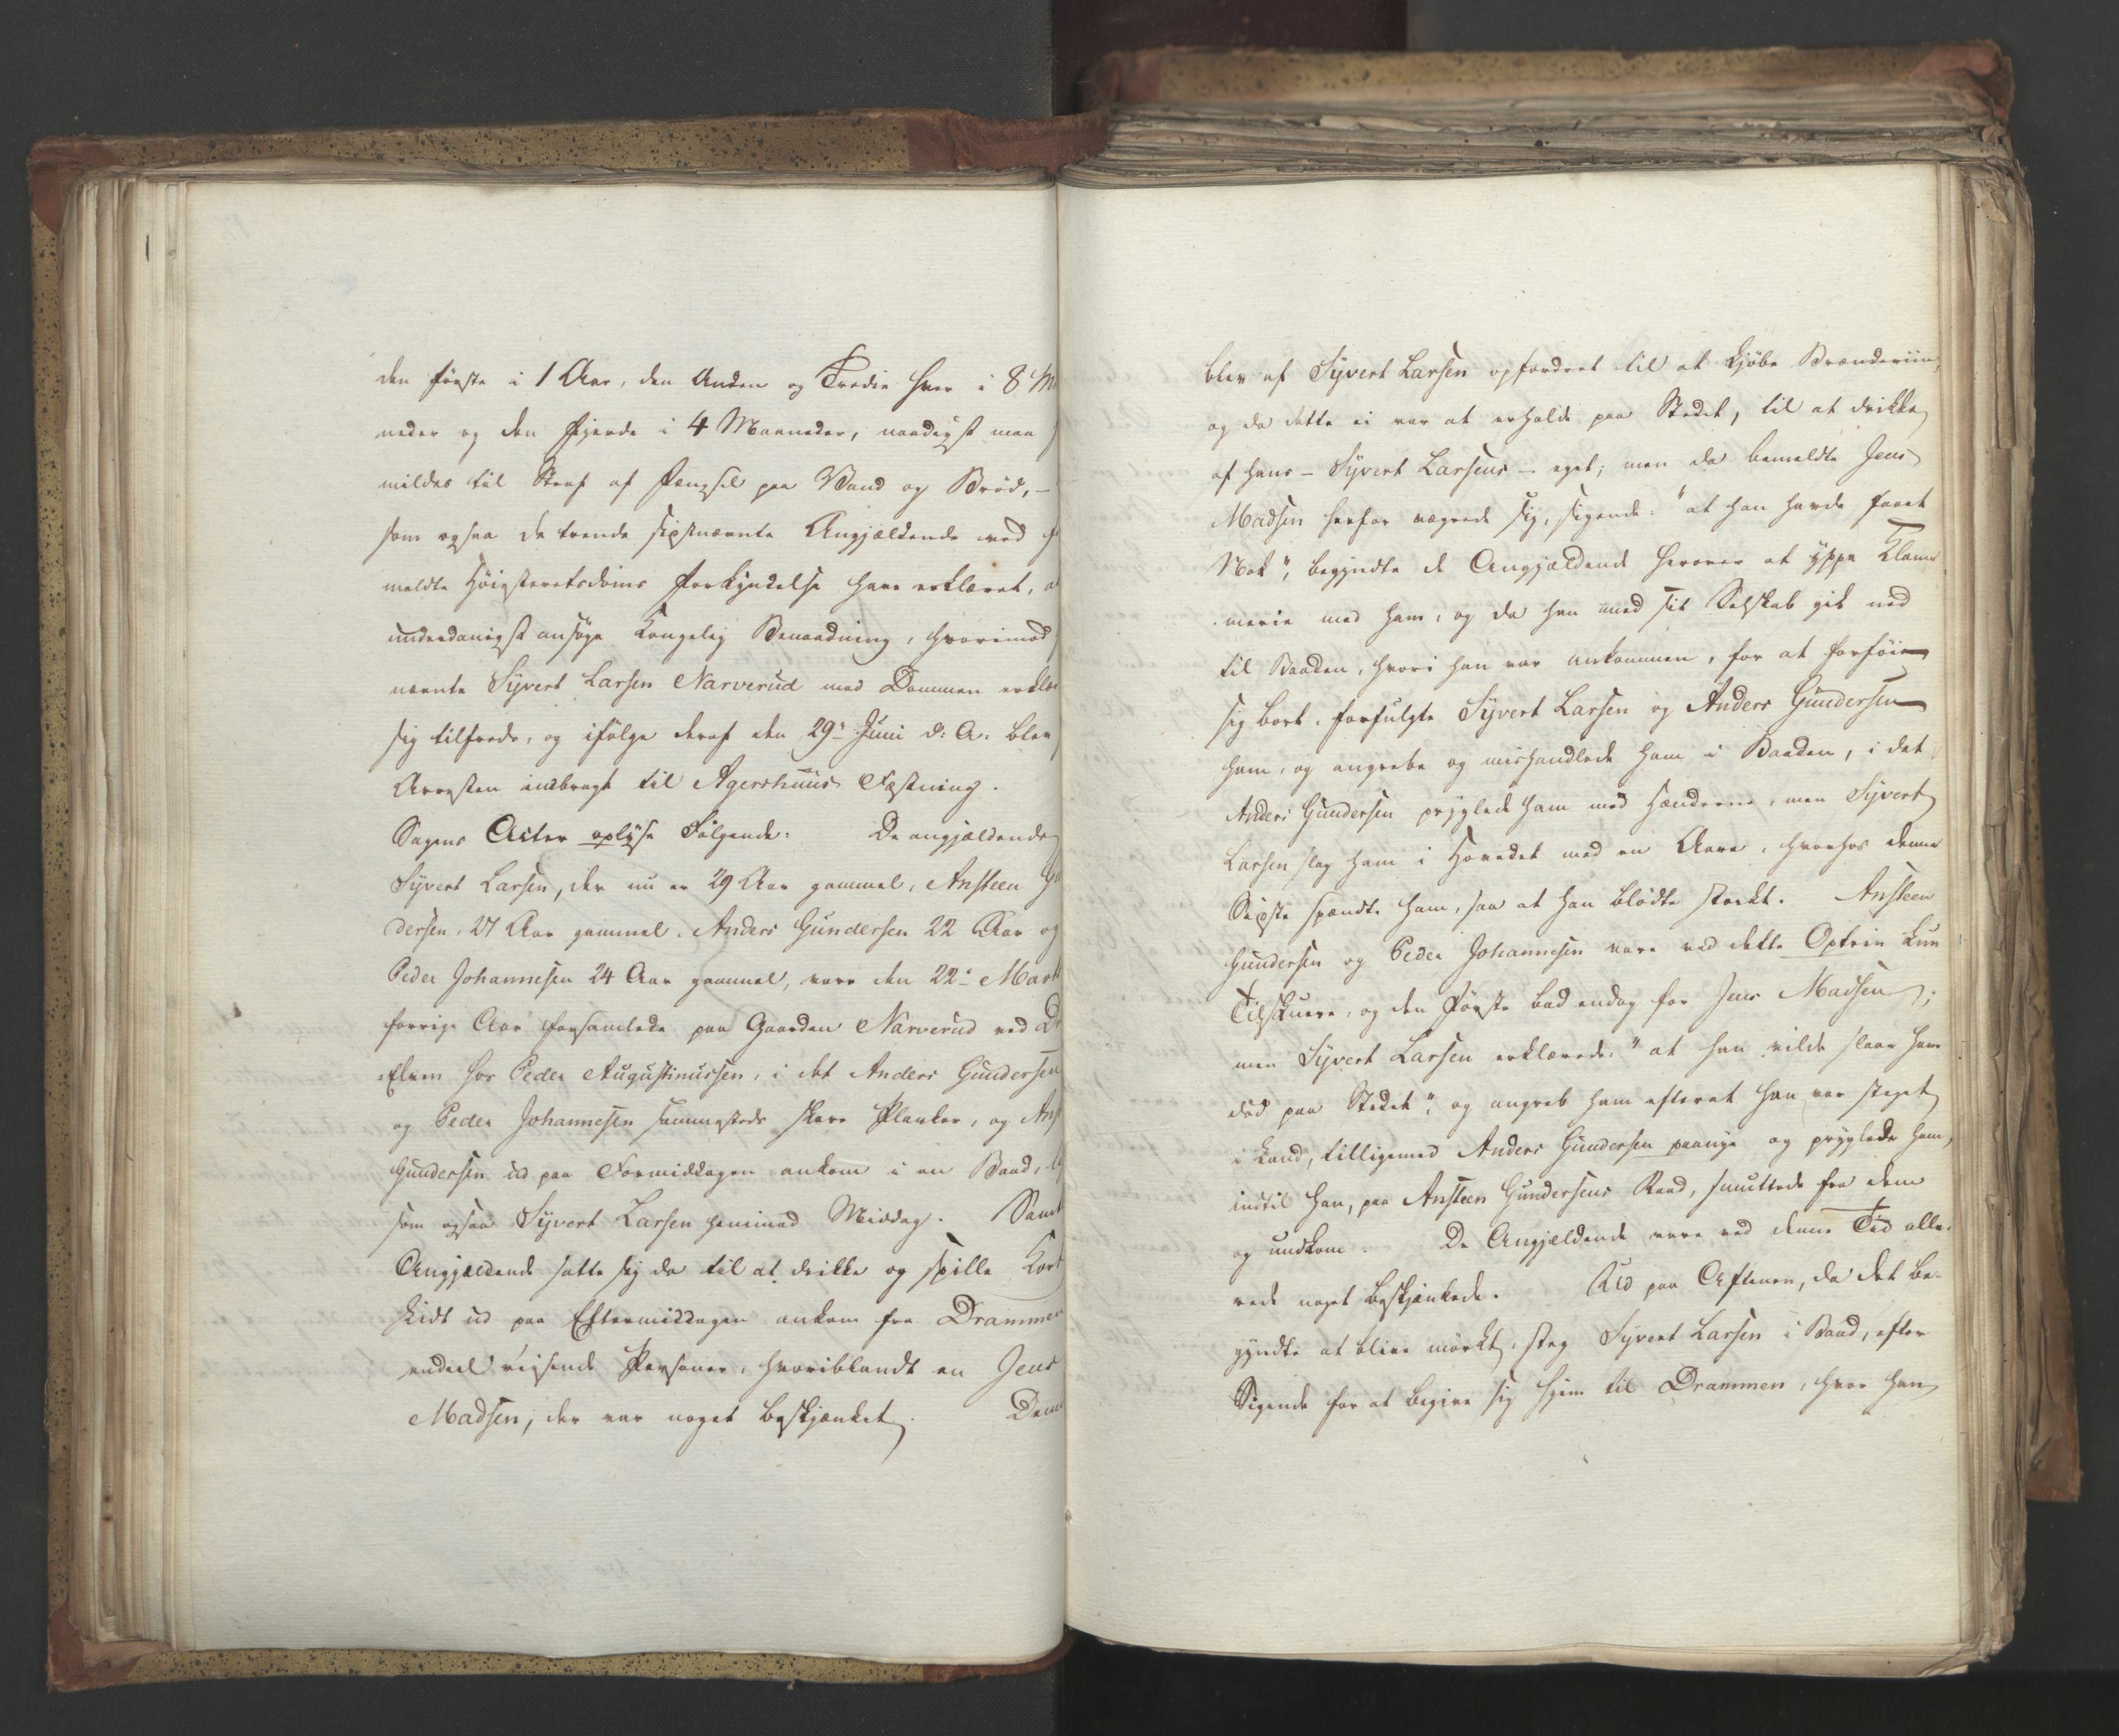 den første i 1 Aar, den Anden og Tredie hver i 8 M
neder og den fjerde i 4 Maaneder, naadigst maa
mildes til Straf af Fængsel paa Vand og Brød, –
som ogsaa de trende sidstnævnte Angjældende ved
meldte Høiesteretsdoms Forkyndelse have erklæret, a
underdanigst ansøge Kongelig Benaadning, hvorimod
nævnte Syvert Larsen Narverud med Dommen erklæ
sig tilfreds, og ifølge deraf den 29de Juni d: A: blev
Arresten indbragt til Agershuus Fæstning.
Sagens Acter oplyse Følgende: De angjældende
Syvert Larsen, der nu er 29 Aar gammel, Ansteen Gu
dersen 27 Aar gammel, Anders Gundersen 22 Aar og
Peder Johannesen 24 Aar gammel, vare den 22de Marti
forrige Aar forsamlede paa Gaarden Narverud ved Dr
Elven hos Peder Augustinussen, i det Anders Gundersen
og Peder Johannesen sammesteds skare Planker, og Anst
Gundersen ud paa Formiddagen ankom i en Baad, li
som ogsaa Syvert Larsen henimod Middag. Samt
Angjældende satte sig da til at drikke og spille Kort
Lidt ud paa Eftermiddagen ankom fra Drammen
endeel reisende Personer, hvoriblandt en Jens
Madsen, der var noget beskjænket. Denne
blev af Syvert Larsen opfordret til at kjøbe Brændeviin,
og da dette ei var at erholde paa Stedet, til at drikke
af hans – Syvert Larsens – eget; men da bemeldte Jens
Madsen herfor vægrede sig, sigende: "at han havde faaet
Nok", begyndte de Angjældende herover at yppe Klam
merie med ham, og da han med sit Selskab gik ned
til Baaden, hvori han var ankommen, for at forføie
sig bort, forfulgte Syvert Larsen og Anders Gundersen
ham, og angrebe og mishandlede ham i Baaden, i det
Anders Gundersen pryglede ham med Hænderne, men Syvert
Larsen slog ham i Hovedet med en Aare, hvorhos denne
Sidste spændte ham, saa at han blødte stærkt. Ansteen
Gundersen og Peder Johannesen vare ved dette Optrin kun
Tilskuere, og den Første bad endog for Jens Madsen;
men Syvert Larsen erklærede: "at han vilde slaae ham
død paa Stedet", og angreb ham efterat han var steget
i Land, tilligemed Anders Gundersen paanye og pryglede ham,
indtil han, paa Ansteen Gundersens Raad, smuttede fra dem
og undkom. De Angjeldende vare ved denne Tid alle-
rede noget beskjænkede. Ud paa Aftenen, da det be-
gyndte at blive mørkt, steg Syvert Larsen i Baad, efter
Sigende for at begive sig hjem til Drammen, hvor han